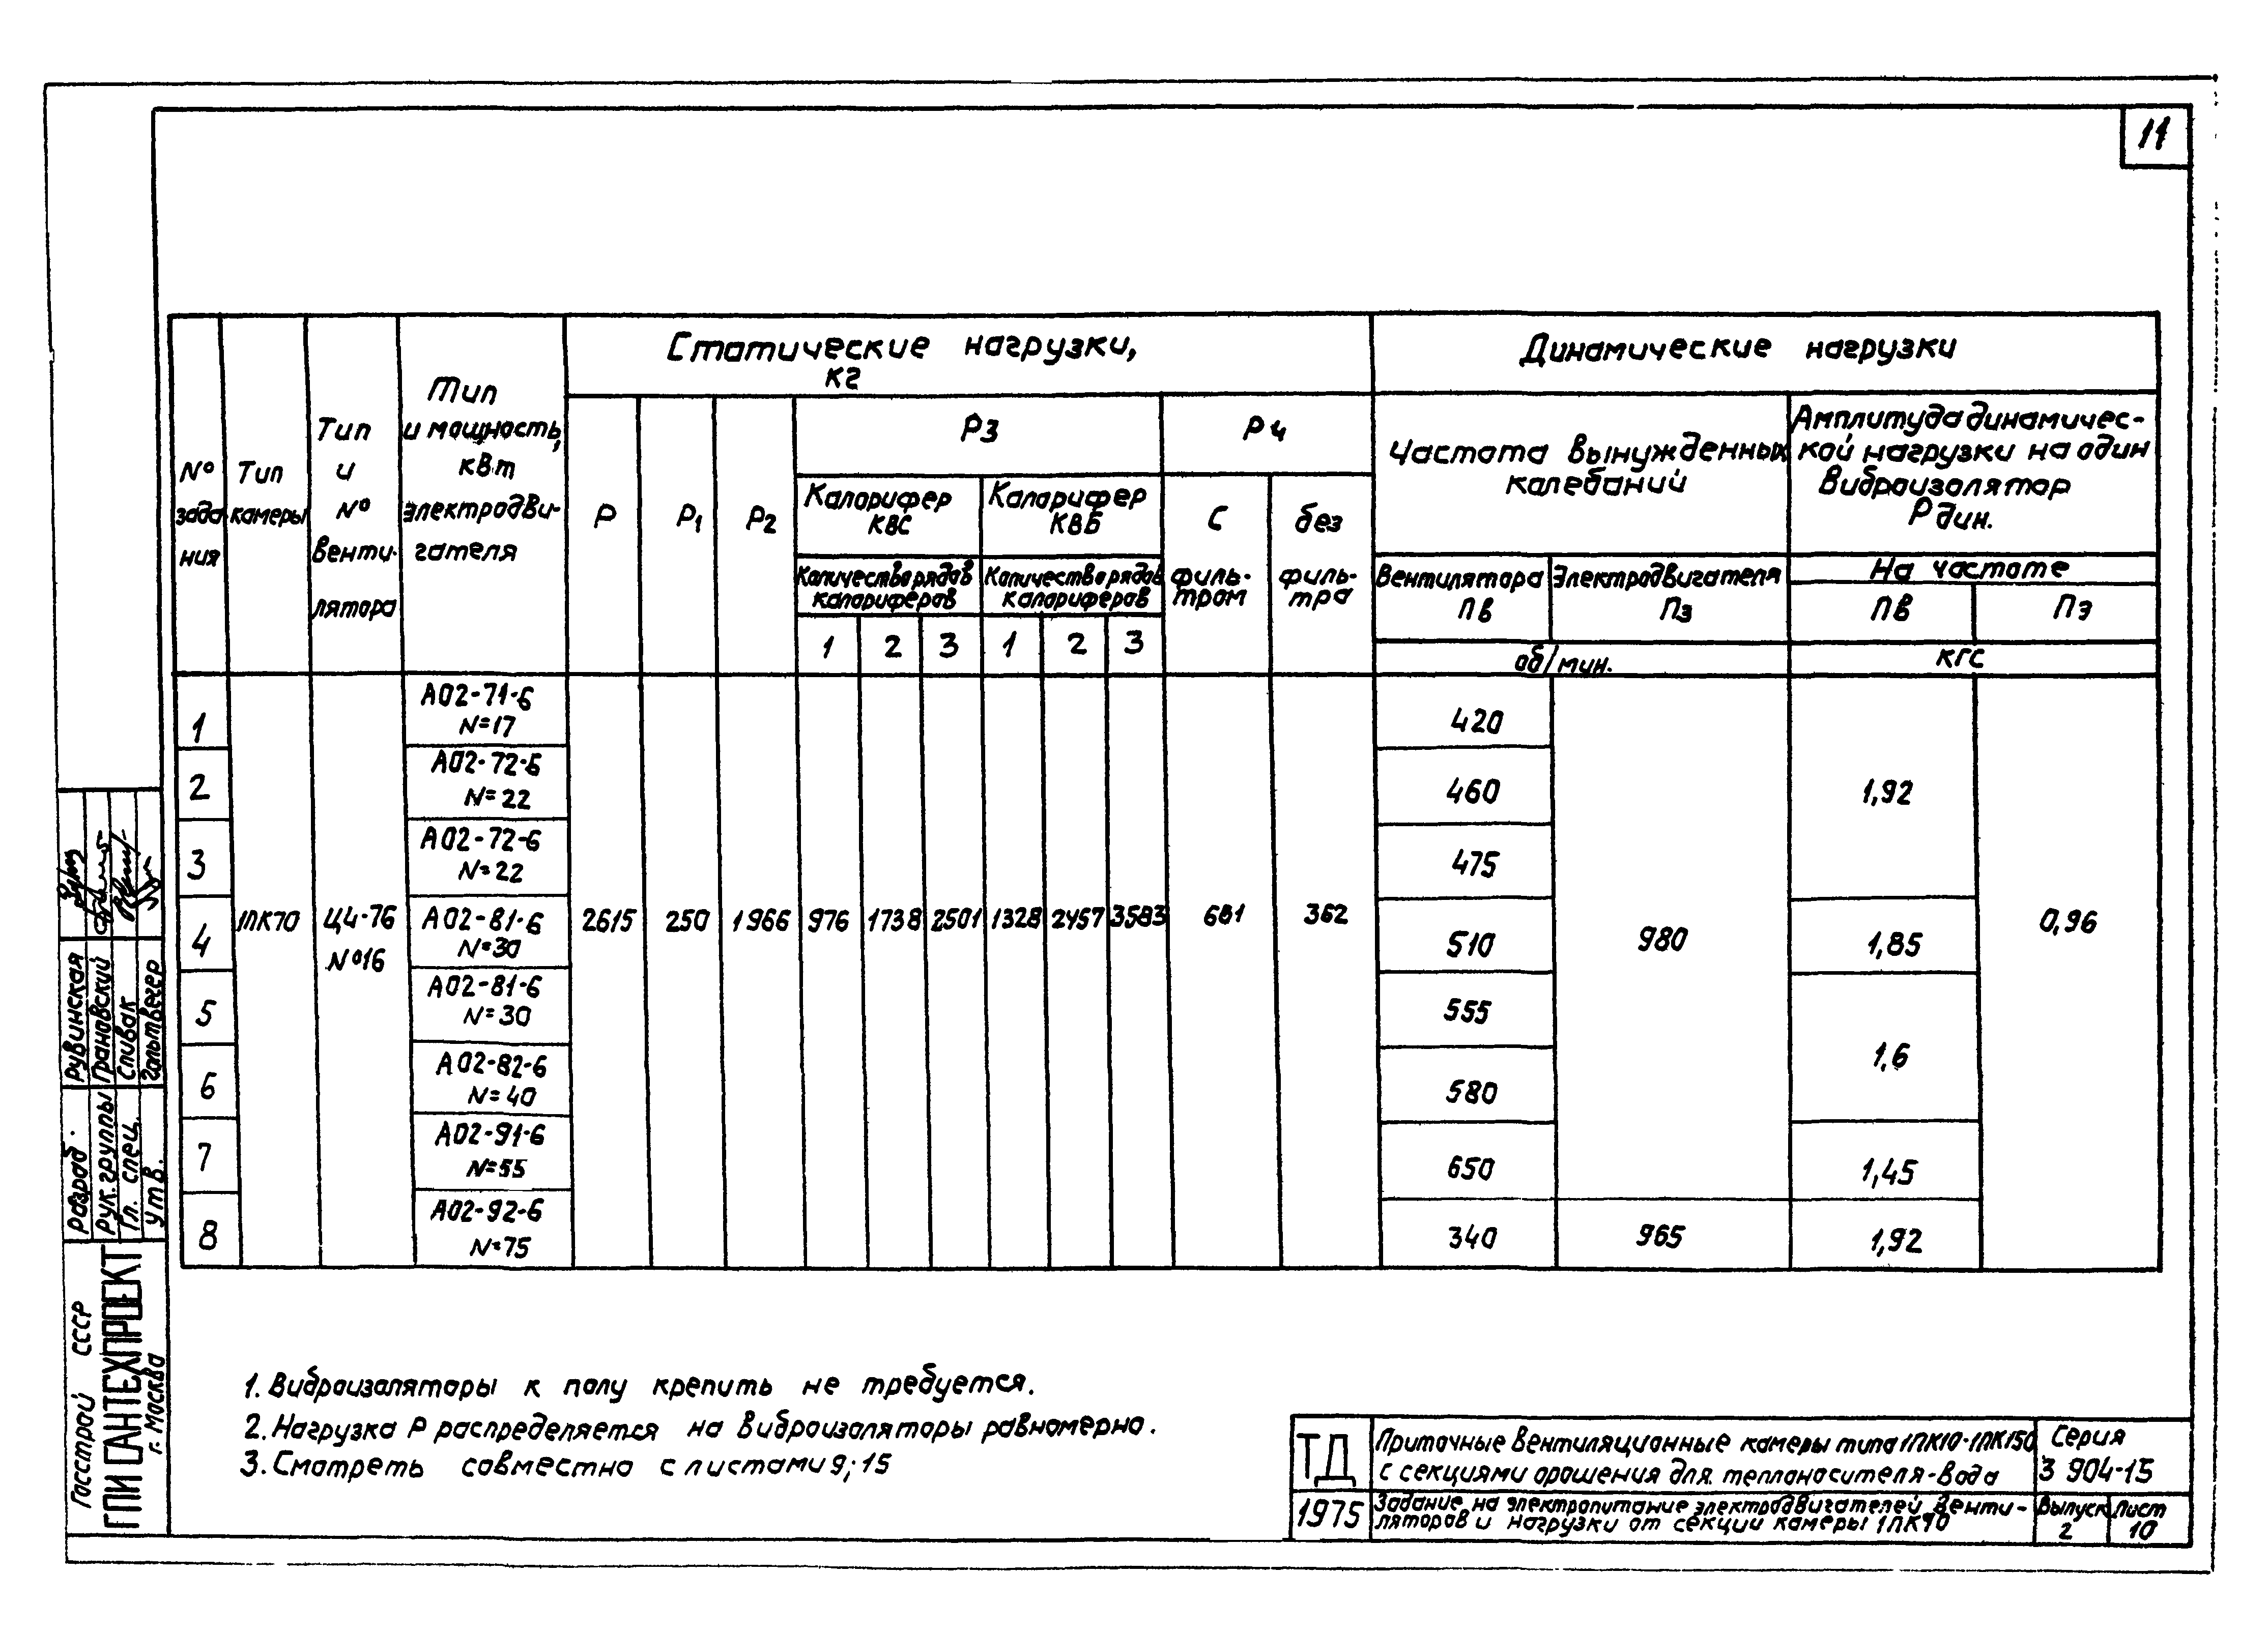 11
Статические нагрузки, кг
Динамические нагрузки
№ задания
Тип камеры
Тип и № вентилятора
Тип и мощность, кВт электродвигателя
Р
Р1
Р2
Р3
Р4
Калорифер КВС
Калорифер КВБ
Количество рядов калориферов
Количество рядов калориферов
1 2 3 1 2 3
С фильтром
без фильтра
Частота вынужденных колебаний
Амплитуда динамической нагрузки на один виброизолятор Р дин.
Вентилятора Пв
Электродвигателя Пэ
На частоте
Пв
Пэ
об/мин.
кгс
1 А02-71-6 N=17 420
2 А02-72-6 N=22 460 1,92
3 А02-72-6 N=22 475
4 1ПК70 Ц4-76 №16 А02-81-6 N=30 2615 250 1966 976 1738 2501 1328 2457 3583 681 362 510 980 1,85 0,96
5 А02-81-6 N=30 555
6 А02-82-6 N=40 580 1,6
7 А02-91-6 N=55 650 1,45
8 А02-92-6 N=75 340 965 1,92
1. Виброизоляторы к полу крепить не требуется.
2. Нагрузка Р распределяется на виброизоляторы равномерно.
3. Смотреть совместно с листами 9; 15
Разраб. Рувинская
Рук. группы Грановский
Гл. спец. Спивак
Утв. Гольтвегер
Госстрой СССР
ГПИ САНТЕХПРОЕКТ
г. Москва
ТД
1975
Приточные вентиляционные камеры типа 1ПК10-1ПК150
с секциями орошения для теплоносителя-вода
Серия
3 904-15
Задание на электропитание электродвигателей, венти-
ляторов и нагрузки от секции камеры 1ПК70
Выпуск 2
Лист 10